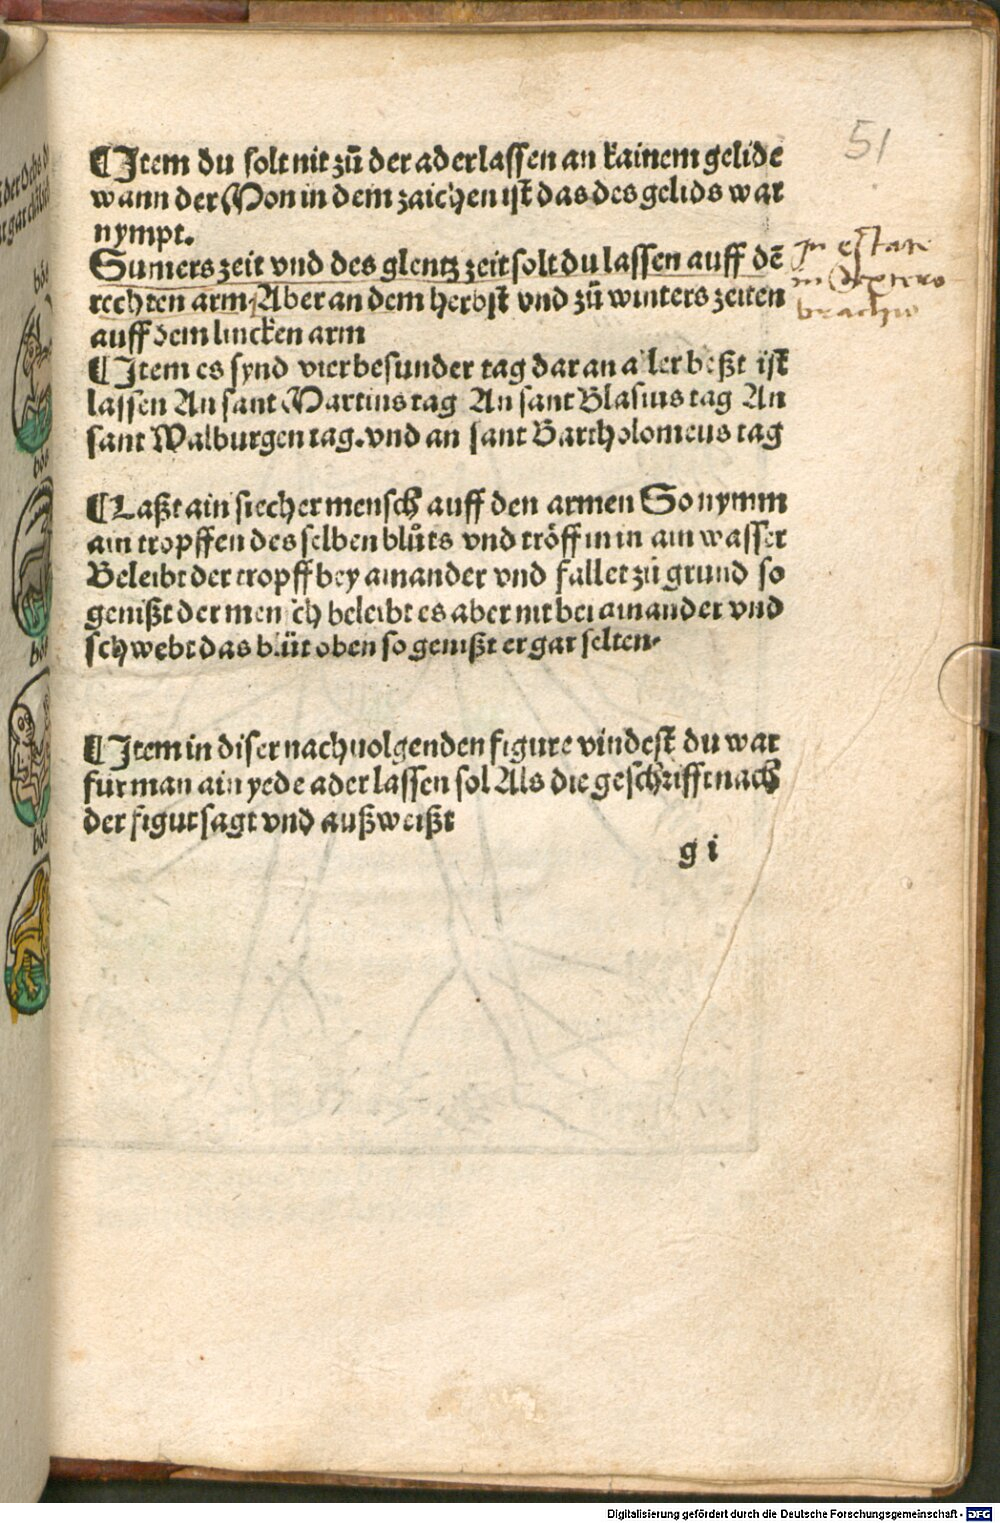 51
¶ Item du solt nit zů der aderlassen an kainem gelide
wann der Mon in dem zaichen ist das des gelids war
nympt.
Sumers zeit vnd des glentz zeit solt du lassen auff dē
rechten arm. Aber an dem herbst vnd zů winters zeiten
auff dem lincken arm
In estate
in dextero
brachio
¶ Item es synd vier besunder tag dar an aller beßt ist
lassen An sant Martins tag An sant Blasius tag An
sant Walburgen tag. vnd an sant Bartholomeus tag
¶ Laßt ain siecher mensch auff den armen So nymm
ain tropffen des selben blůts vnd tröff in in ain wasser
Beleibt der tropff bey ainander vnd fallet zů grund so
genißt der mensch beleibt es aber nit bei ainander vnd
schwebt das blůt oben so genißt er gar selten.
¶ Item in diser nachuolgenden figure vindest du war
für man ain yede ader lassen sol Als die geschrifft nach
der figur sagt vnd außweißt
g i
Digitalisierung gefördert durch die Deutsche Forschungsgemeinschaft - DFG